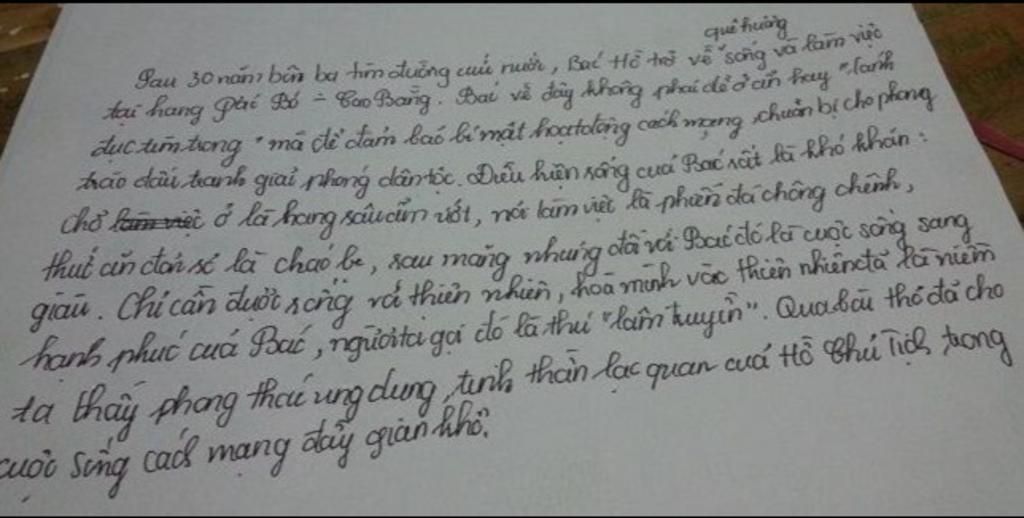 quê hương
Sau 30 năm bôn ba tìm đường cứu nước, Bác Hồ trở về sống và làm việc
tại hang Pác Bó - Cao Bằng. Bác về đây không phải để ở ẩn hay "lánh
đục tìm trong" mà để đảm bảo bí mật hoạt động cách mạng, chuẩn bị cho phong
trào đấu tranh giải phóng dân tộc. Điều kiện sống của Bác rất là khó khăn:
chỗ làm việc ở là hang sâu ẩm ướt, nơi làm việc là phiến đá chông chênh,
thức ăn đơn sơ là cháo bẹ, rau măng nhưng đối với Bác đó là cuộc sống sang
giàu. Chỉ cần được sống với thiên nhiên, hoà mình vào thiên nhiên đã là niềm
hạnh phúc của Bác, người ta gọi đó là thú "lâm tuyền". Qua bài thơ đã cho
ta thấy phong thái ung dung, tinh thần lạc quan của Hồ Chủ Tịch trong
cuộc sống cách mạng đầy gian khổ.